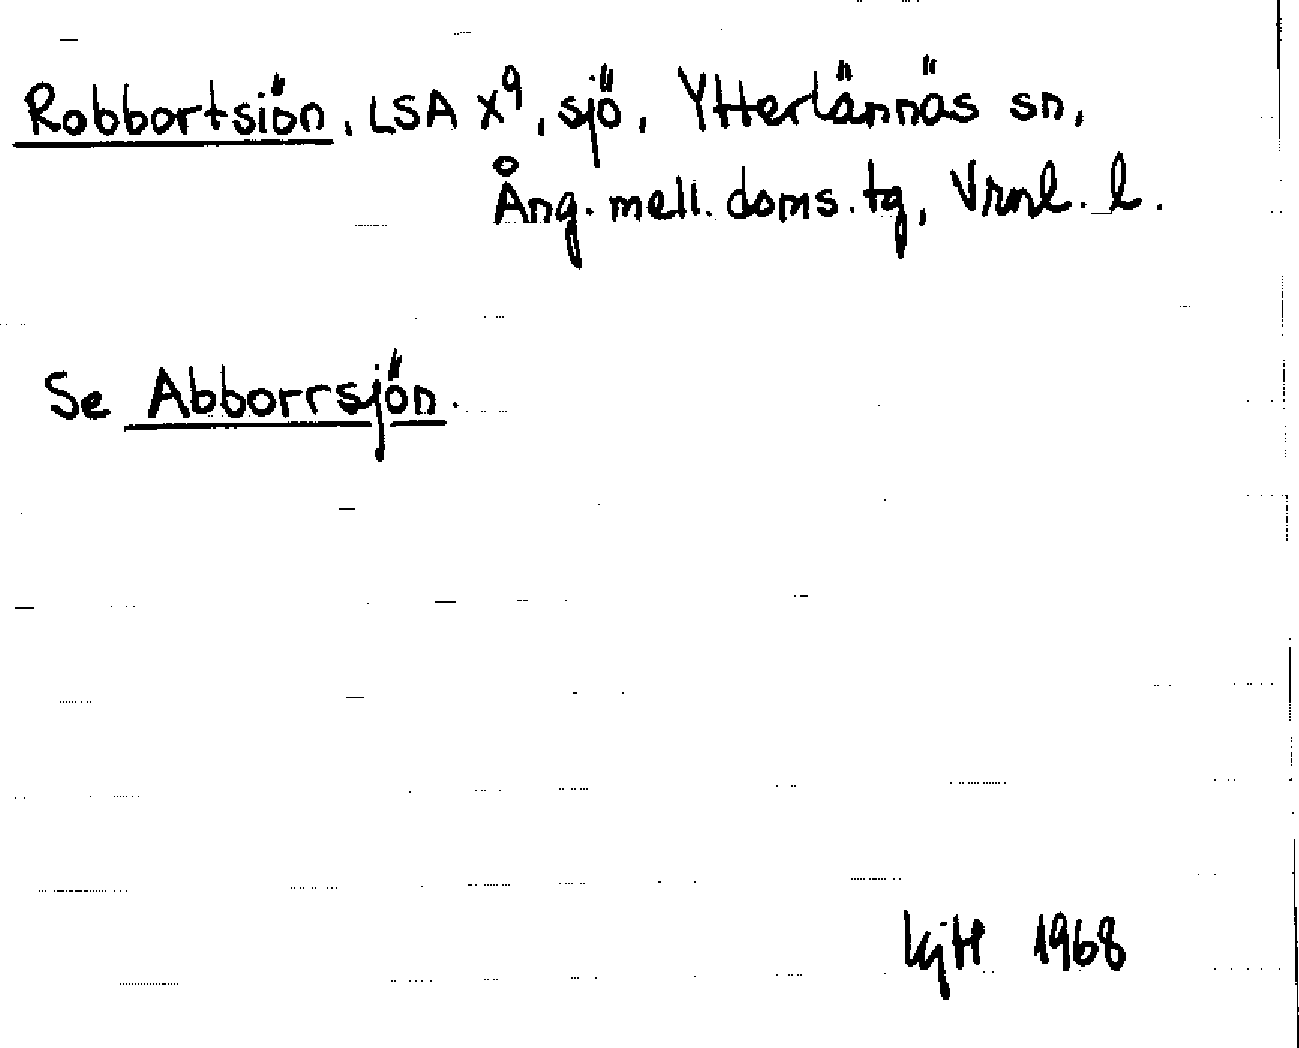 Robbortsiön, LSA X9, sjö, Ytterlännäs sn,
Ång. mell. doms. tg, Vrnl. l.
Se Abborrsjön.
KjH 1968